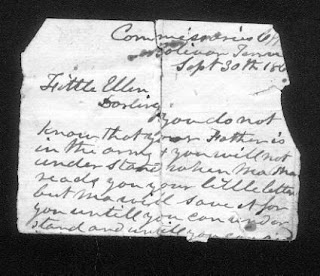 Commissaries Off
Bolivar Tenn
Sept 30th 186
Little Ellen
Darling
you do not
know that your Father is
in the army & you will not
understand when Ma Ma
reads you your little letter
but Ma will save it for
you untill you can under
stand and untill you can